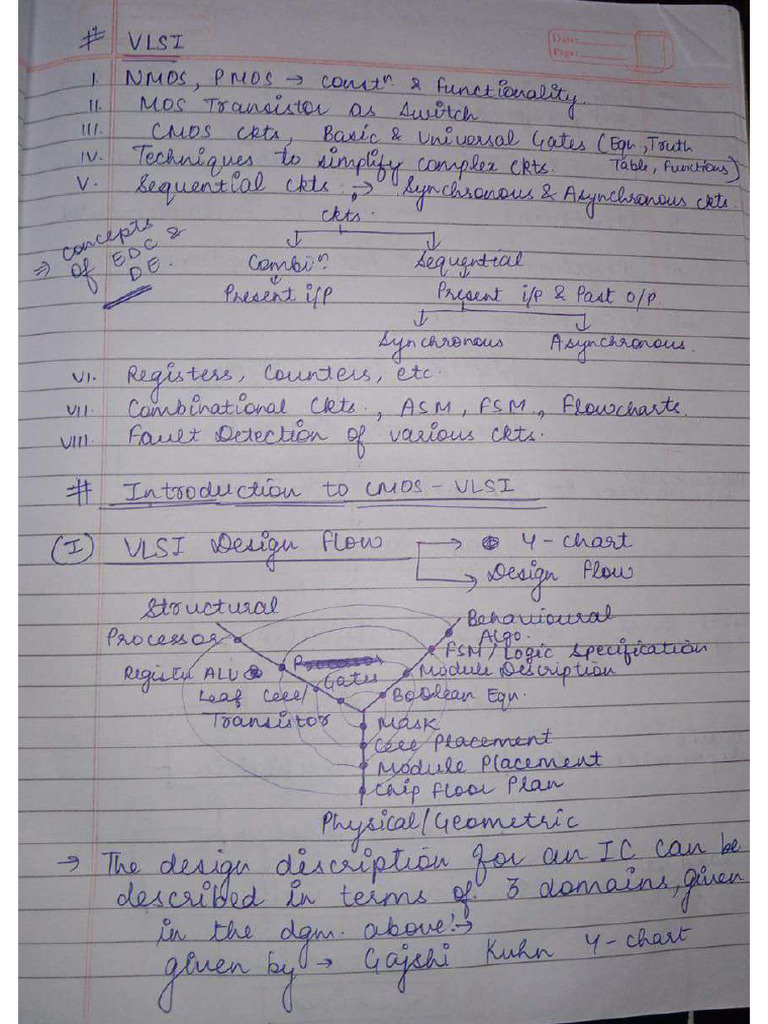 # VLSI
Date:
Page:
I. NMOS, PMOS → constⁿ. & functionality.
II. MOS Transistor as Switch
III. CMOS ckts, Basic & Universal Gates (Eqn, Truth
IV. Techniques to simplify complex ckts. Table, Functions)
V. Sequential ckts. → Synchronous & Asynchronous ckts.
ckts.
⇒ concepts of EDC & DE.
Combiⁿ. Sequential
Present i/p Present i/p & Past o/p.
Synchronous Asynchronous.
VI. Registers, Counters, etc.
VII. Combinational Ckts., ASM, FSM, Flowcharts.
VIII. Fault Detection of various ckts.
# Introduction to CMOS - VLSI
(I) VLSI Design Flow → Y-chart
→ Design flow
Structural Behavioural
Processor Algo.
FSM/Logic Specification
Register ALU Module Description
Gates
Leaf Cell/ Boolean Eqn.
Transistor Mask
Cell Placement
Module Placement
Chip Floor Plan
Physical/Geometric
→ The design discription for an IC can be
described in terms of 3 domains, given
in the dgm. above:→
given by → Gajshi Kuhn Y-chart